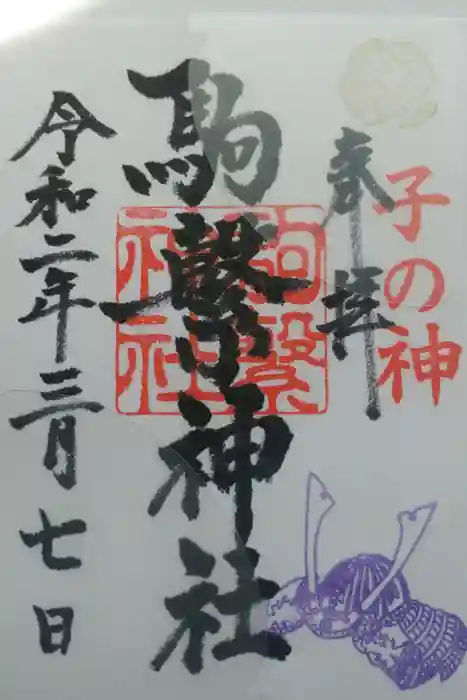 子の神
奉拝
駒繋神社
駒繋神社
令和二年三月七日